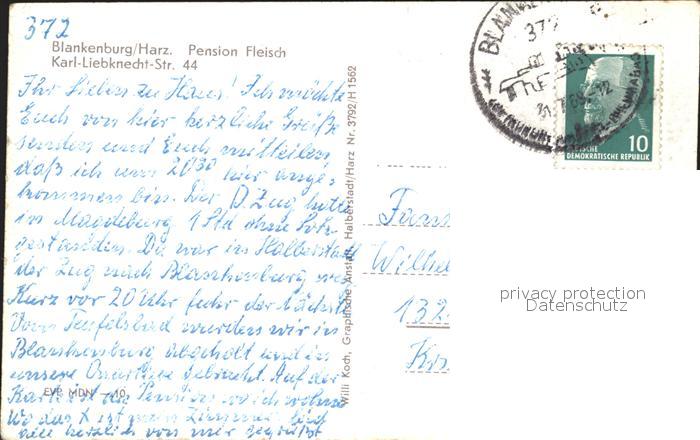 372
Blankenburg/Harz. Pension Fleisch
Karl-Liebknecht-Str. 44
Ihr Lieben zu Haus! Ich möchte
Euch von hier herzliche Grüße
senden und Euch mitteilen,
daß ich um 20³⁰ hier ange-
kommen bin. Der D.Zug hatte
in Magdeburg 1 Std ohne Lok
gestanden. Da war in Halberstadt
der Zug nach Blankenburg weg
Kurz vor 20 Uhr fuhr der nächste
Vom Teufelsbad wurden wir in
Blankenburg abgeholt und in
unsere Quartiere gebracht. Auf der
Karte ist die Pension wo ich wohne
wo das X ist mein Zimmer. Seid
alle herzlich von mir gegrüßt
EVP MDN -.10
Willi Koch, Graphische Anstalt, Halberstadt/Harz Nr. 3792/H 1562
BLANKEN
372
10
DEMOKRATISCHE REPUBLIK
Fam
Wilhe
132
Kr
privacy protection
Datenschutz